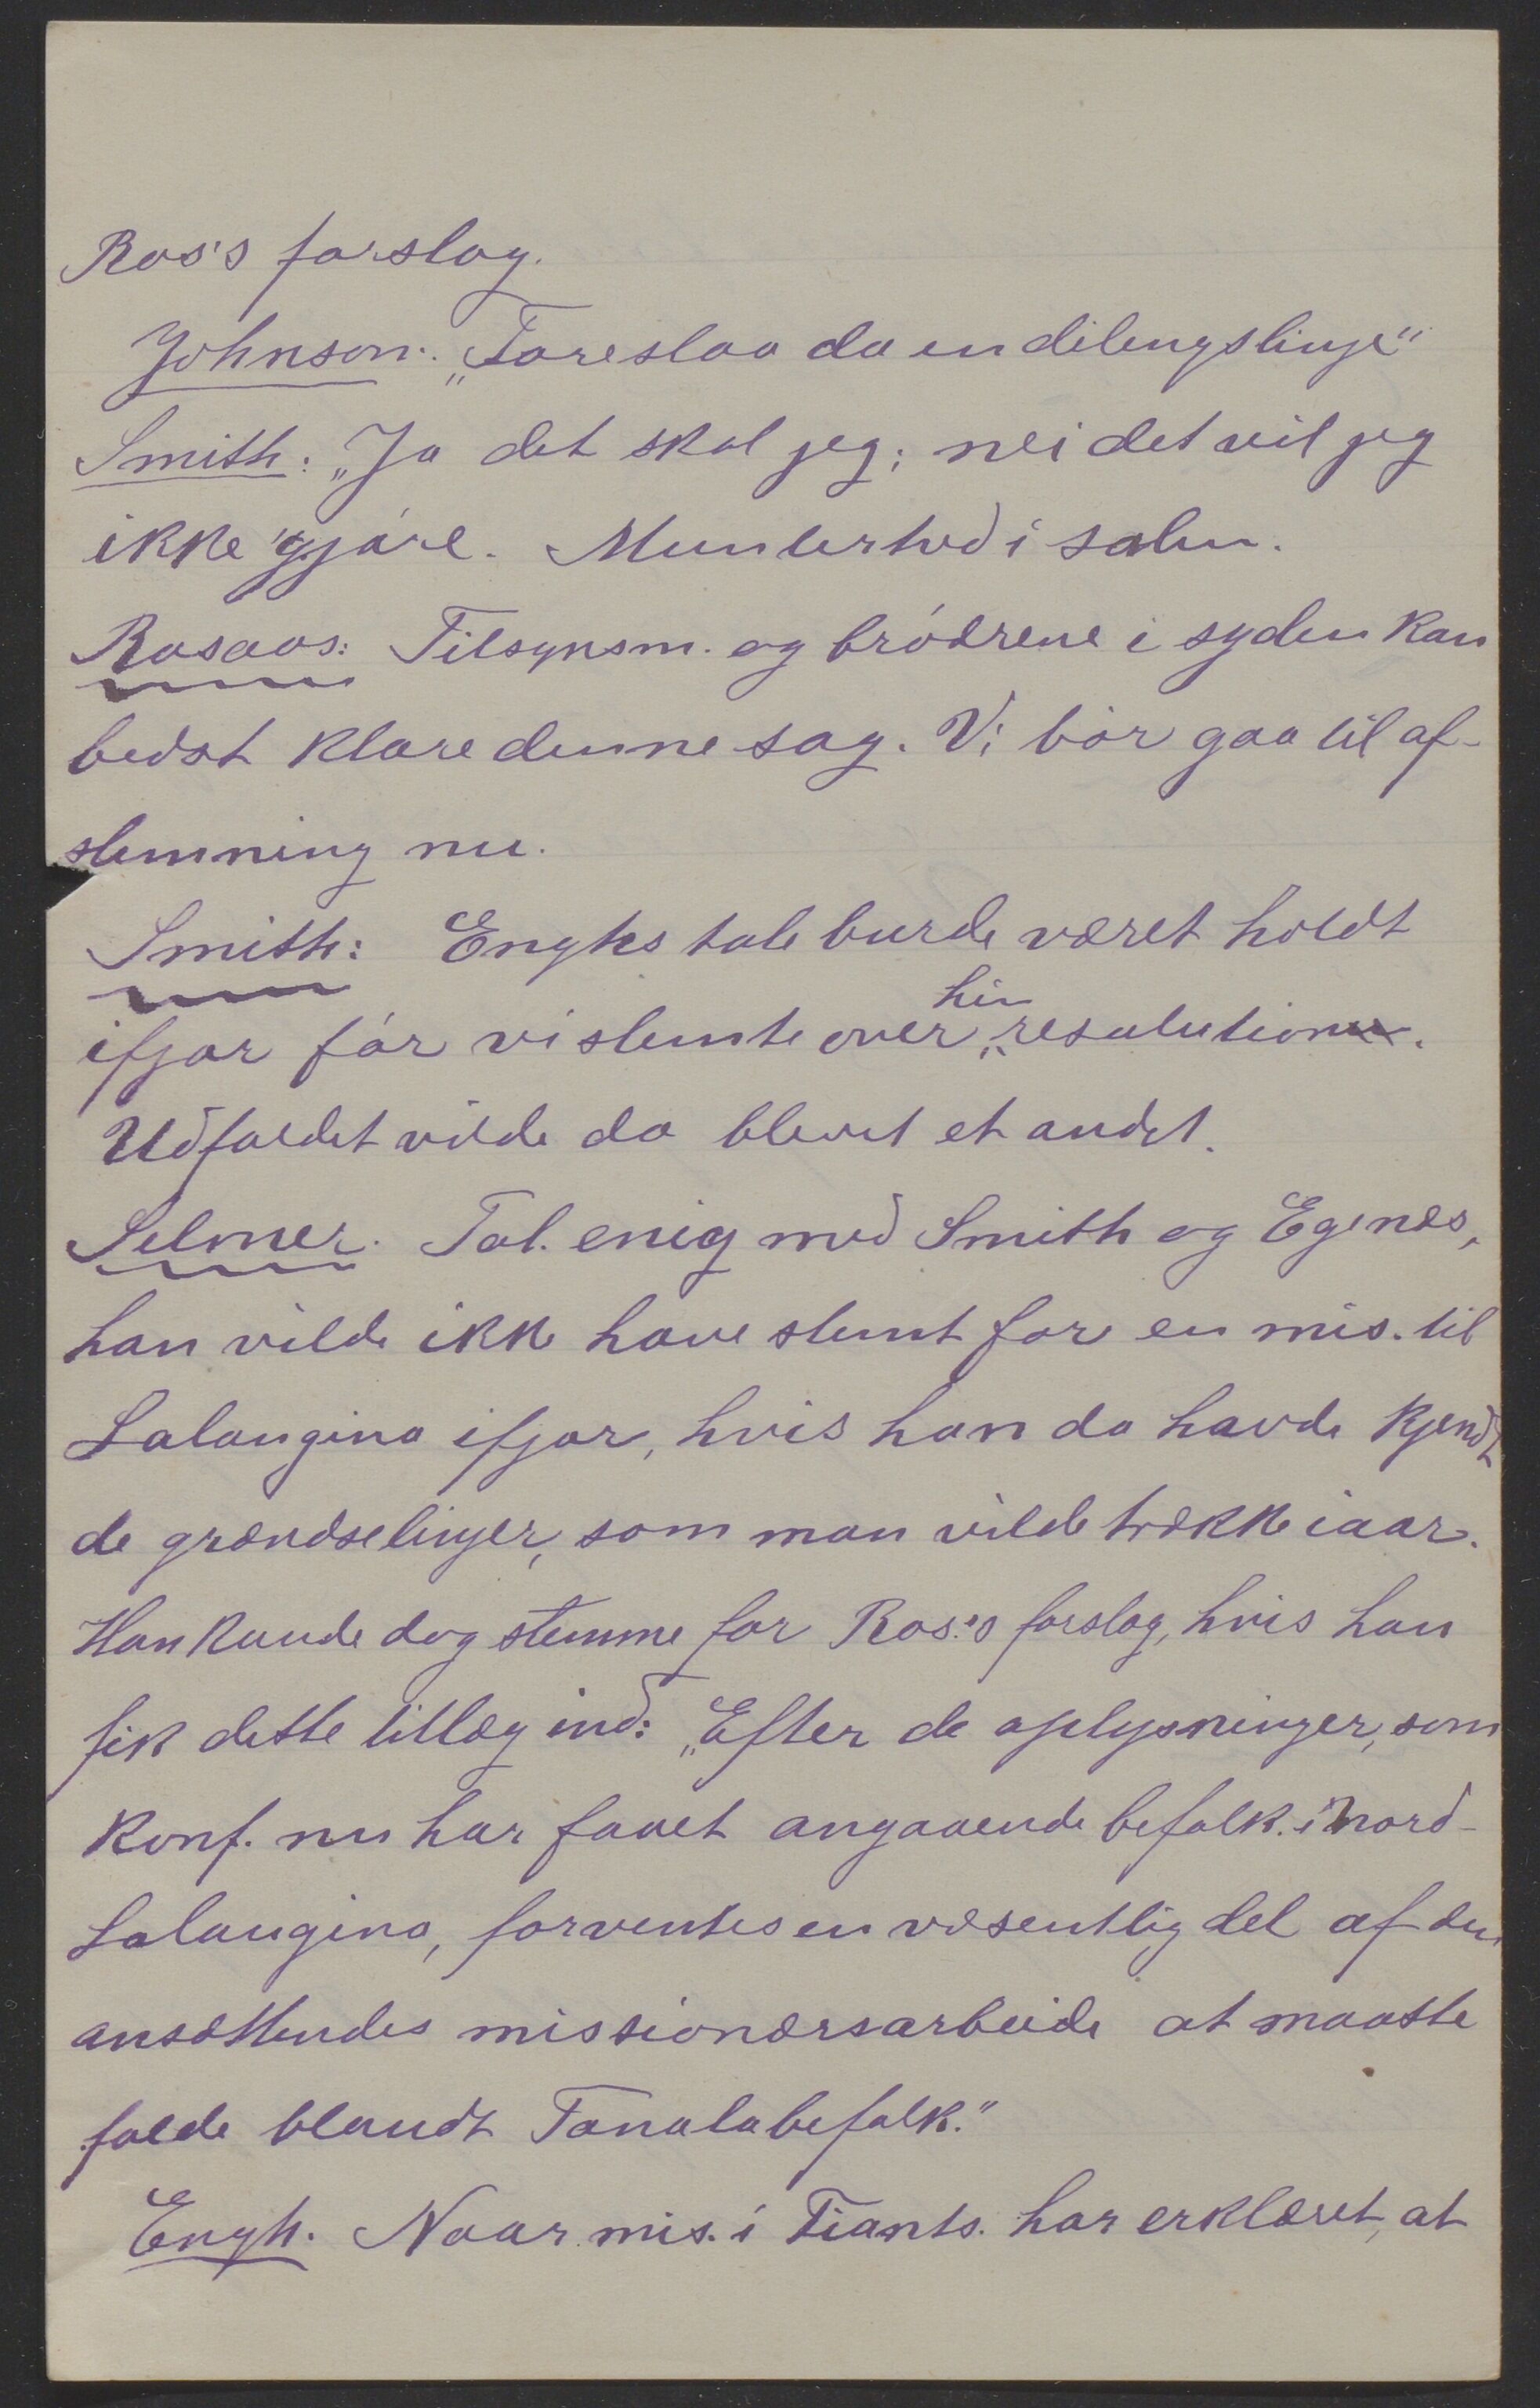 Ros's forslag.
Johnson: „Foreslaa da en delingslinje"
Smith: „Ja det skal jeg; nei det vil jeg
ikke gjóre. Munterhed i salen.
Rosaas: Tilsynsm. og bródrene i syden kan
bedst klare denne sag. Vi bór gaa til af-
stemning nu.
Smith: Enghs tale burde været holdt
ifjor fór vi stemte over hin resolution.
Udfaldet vilde da blevet et andet.
Selmer. Tal. enig med Smith og Egenæs,
han vilde ikke have stemt for en mis. til
Lalangina ifjor, hvis han da havde kjendt
de grændselinjer, som man vilde trække iaar.
Han kunde dog stemme for Ros:'s forslag, hvis han
fik dette tillæg ind: „Efter de oplysninger, som
Konf. nu har faaet angaaende befolk. i Nord-
Lalangina, forventes en væsentlig del af den
ansættendes missionærsarbeide at maatte
falde blandt Tanalabefolk."
Engh. Naar mis. i Fiants. har erklæret, at